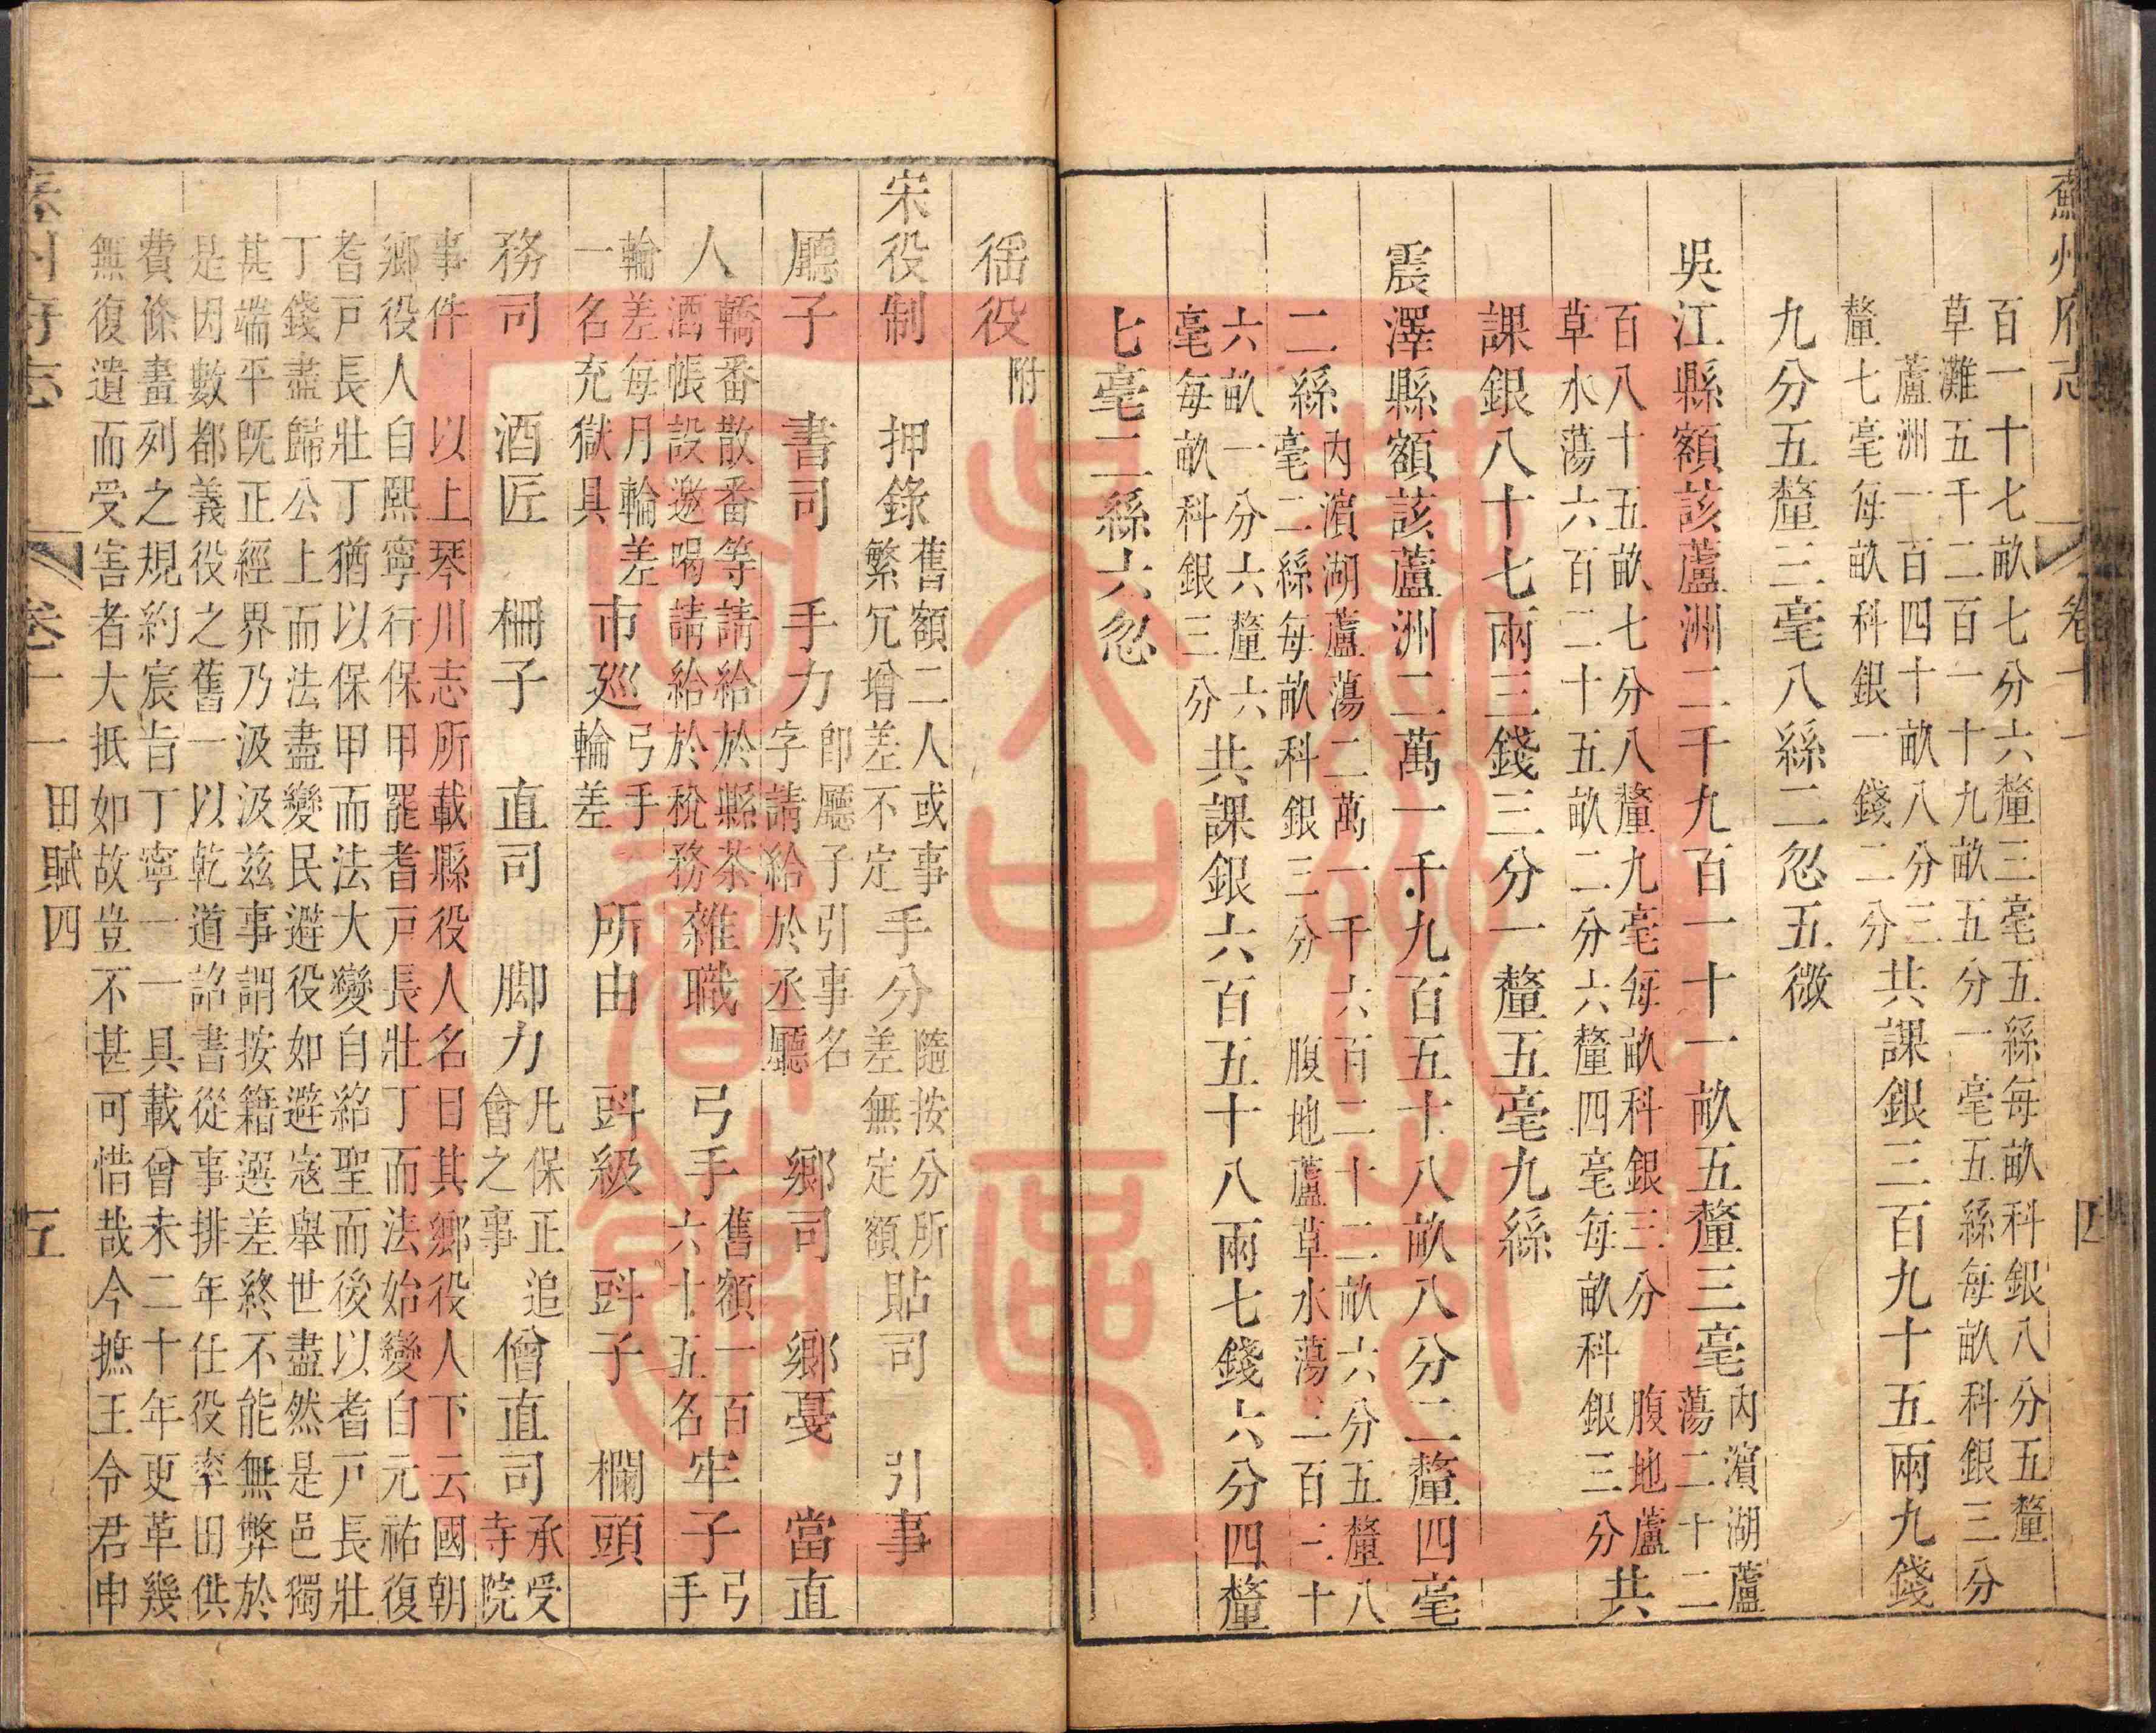 蘇州府志 卷十一 四
百一十七畝七分六釐三毫五絲每畝科銀八分五釐
草灘五千二百一十九畝五分一毫五絲每畝科銀三分
蘆洲一百四十畝八分三
釐七毫每畝科銀一錢二分
共課銀三百九十五兩九錢
九分五釐三毫八絲二忽五微
吳江縣額該蘆洲二千九百一十一畝五釐三毫
內濱湖蘆
蕩二千二
百八十五畝七分八釐九毫每畝科銀三分 腹地蘆
草水蕩六百二十五畝二分六釐四毫每畝科銀三分
共
課銀八十七兩三錢三分一釐五毫九絲
震澤縣額該蘆洲二萬一千九百五十八畝八分二釐四毫
二絲
內濱湖蘆蕩二萬一千六百二十二畝六分五釐八
毫二絲每畝科銀三分 腹地蘆草水蕩三百三十
六畝一分六釐六
毫每畝科銀三分
共課銀六百五十八兩七錢六分四釐
七毫二絲六忽
徭役附
宋役制 押錄
舊額二人或事
繁冗增差不定
手分
隨按分所
差無定額
貼司 引事
廳子 書司 手力
卽廳子引事名
字請給於丞廳
鄉司 鄉戞 當直
人
轎番散番等請給於縣茶
酒帳設邀喝請給於稅務
雜職 弓手
舊額一百
六十五名
牢子
弓
手
輪差每月輪差
一名充獄具
市廵
弓手
輪差
所由 斗級 斗子 欄頭
務司 酒匠 柵子 直司 脚力
凡保正追
會之事
僧直司
承受
寺院
事件 以上琴川志所載縣役人名目其鄉役人下云國朝
鄉役人自熙寧行保甲罷耆戸長壯丁而法始變自元祐復
耆戸長壯丁猶以保甲而法大變自紹聖而後以耆戸長壯
丁錢盡歸公上而法盡變民避役如避寇舉世盡然是邑獨
甚端平既正經界乃汲汲茲事謂按籍選差終不能無弊於
是因數都義役之舊一以乾道詔書從事排年任役率田供
費條畫列之規約宸旨丁寧一一具載曾未二十年更革幾
無復遺而受害者大抵如故豈不甚可惜哉今摭王令君申
蘇州府志 卷十一 田賦四 五